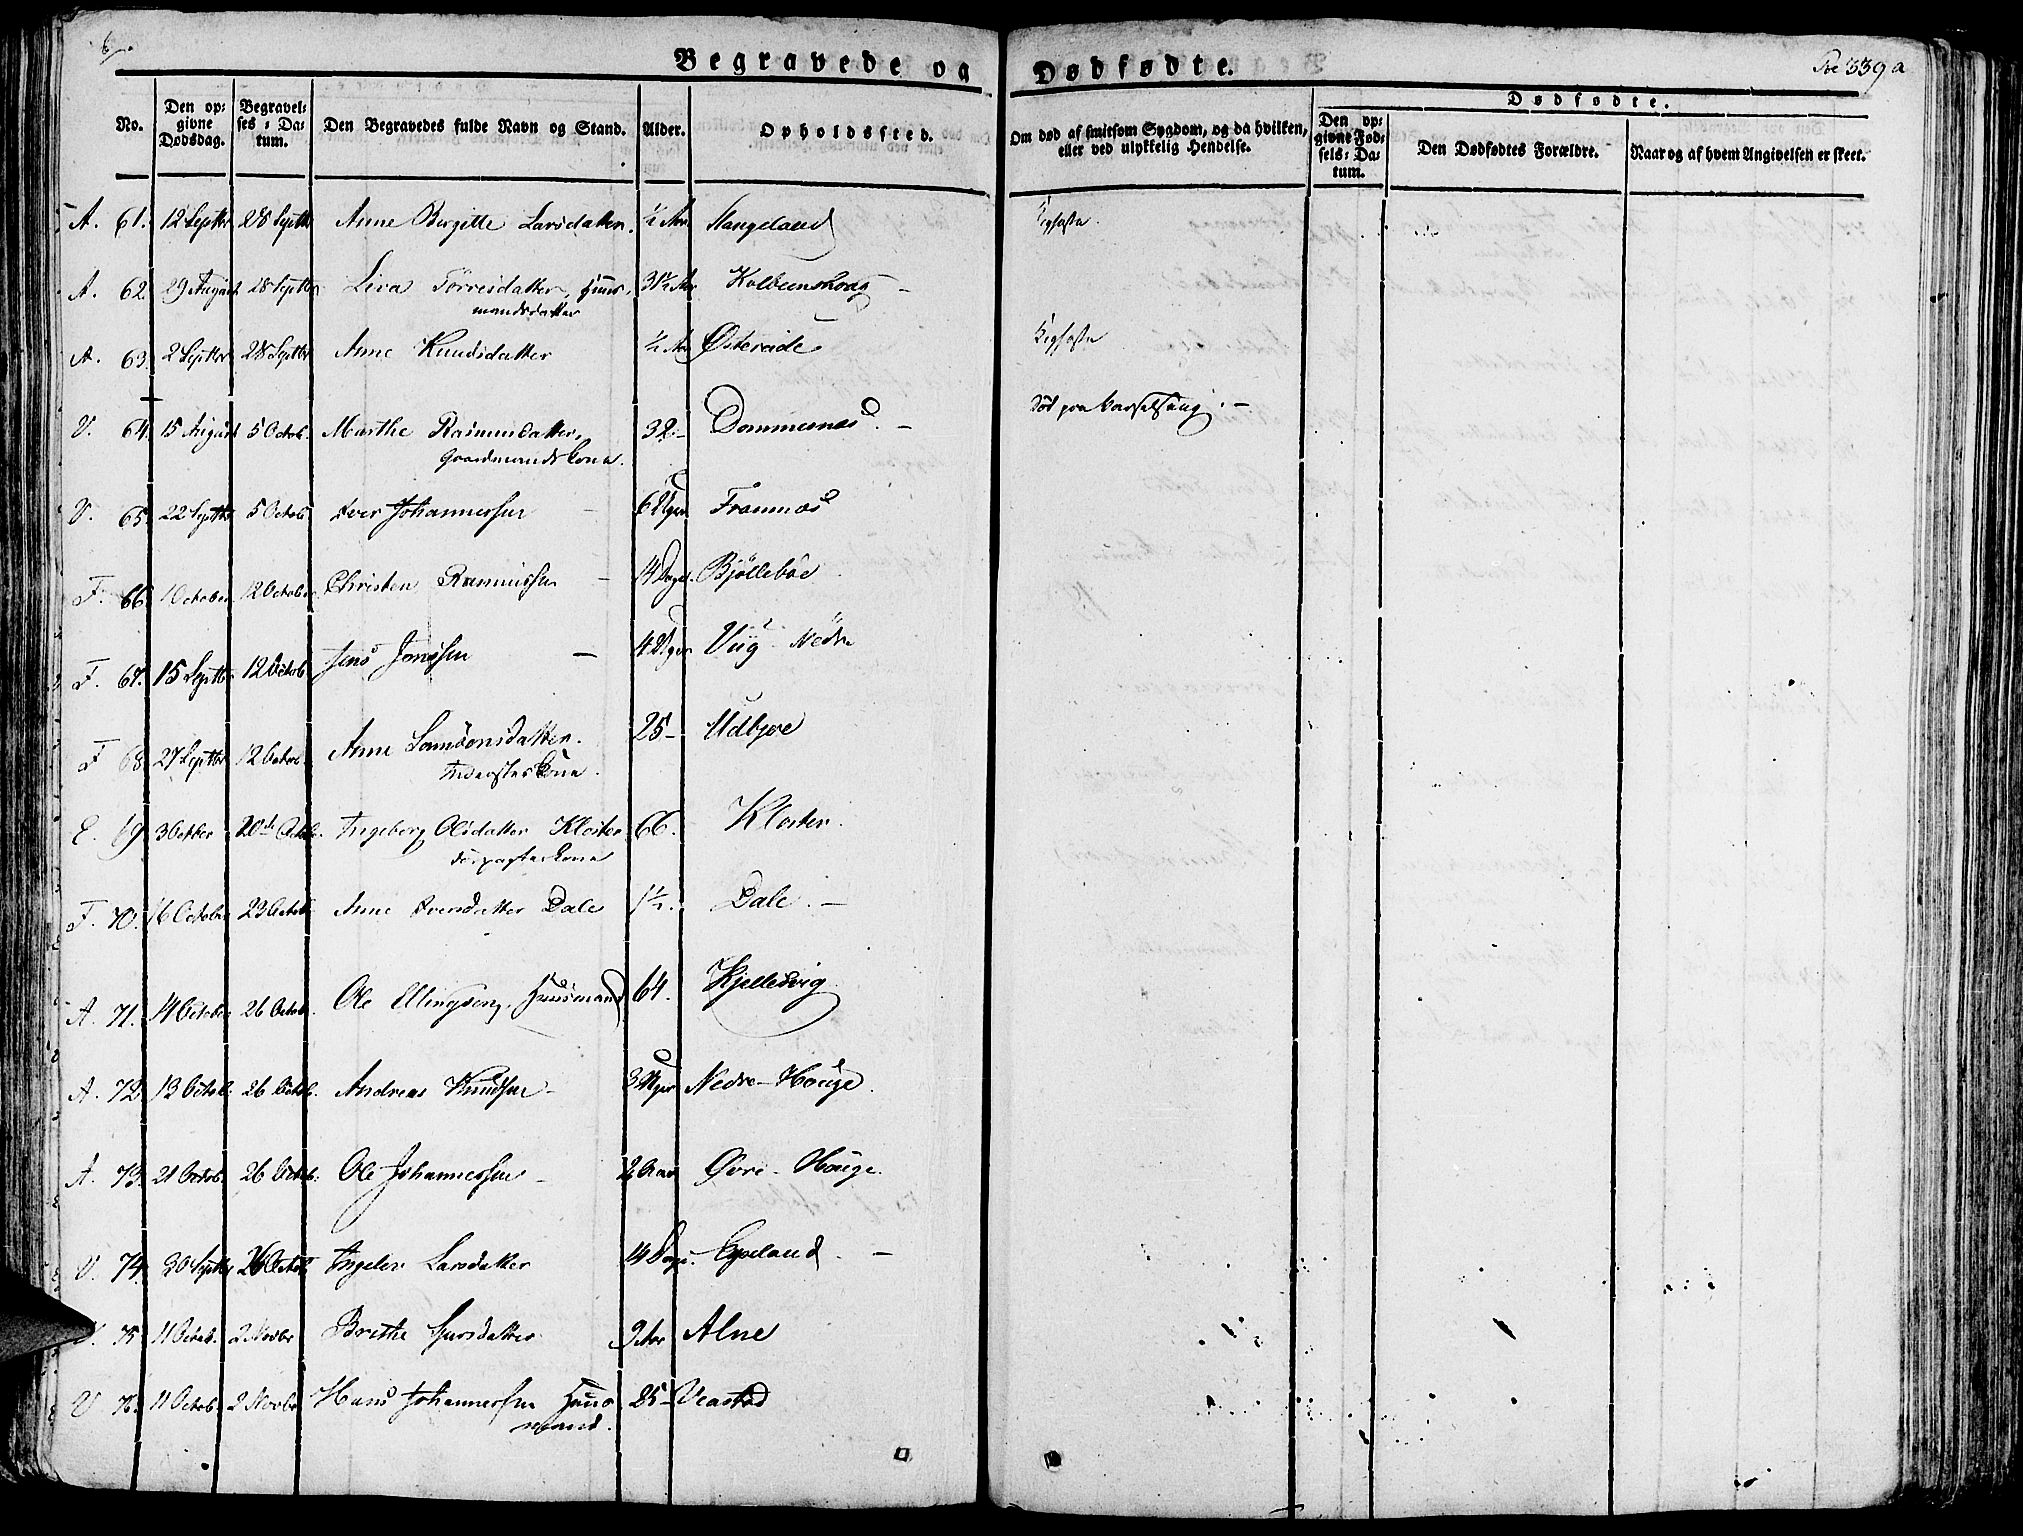 Begravede og Dødfødte.
339 a
No. Den opgivne Dødsdag. Begravelses-Datum. Den Begravedes fulde Navn og Stand. Alder. Opholdssted. Om død af smitsom Sygdom, og da hvilken, eller ved ulykkelig Hendelse.
Dødfødte.
Den opgivne Fødsels-Datum. Den Dødfødtes Forældre. Naar og af hvem Angivelsen er skeet.
A. 61. 12 Septbr 28 Septbr Anne Birgitte Larsdatter. ½ Aar Stangeland
A. 62 29 August 28 Septbr Liva Torresdatter, Huus- 31½ Aar Kolbeenshoug –
mandsdatter
A. 63. 2 Septbr 28 Septbr Anne Knudsdatter ½ Aar Østereide
V. 64. 15 August 5 Octob. Marthe Rasmusdatter, 32 – Dommesnæs. – Død paa Barselseng. –
Gaardmandskone.
V. 65. 22 Septbr 5 Octob Iver Johannessen – 6 Uger Framnæs
F. 66. 1 October 12 October Christen Rasmussen – 14 Dage. Bjøllebøe
F. 67. 15 Septbr 12 Octob Jens Jonssen – 4 Uger Viig Nedre
F 68. 27 Septbr 12 Octob. Anne Samsonsdatter. 25 – Udbjoe
Inderstes Kone.
E. 69. 3 Octber 20de Octob. Ingeborg Olsdatter Kloster 66. Kloster.
F. 70. 16 October 23 Octob Anne Iversdatter Dale 1½. Dale. –
A. 71. 14 October 26 Octob. Ole Ellingsen, Huusmand 64. Kjellesvig
A. 72. 13 Octob. 26 Octob. Andreas Knudsen – 3 Uger Nedre – Houge.
A. 73. 21 Octob. 26 Octob. Ole Johannessen – 2 Aar Øvre – Houge.
V. 74. 30 Septbr 26 Octob Ingeber Larsdatter 14 Dage. Egeland. –
V. 75. 11 Octob. 2 Novbr Brithe Sjursdatter 9 Aar Alne
V 76. 11 Octob. 2 Novbr Hans Johannessen Huus- 25 – Veastad
mand.